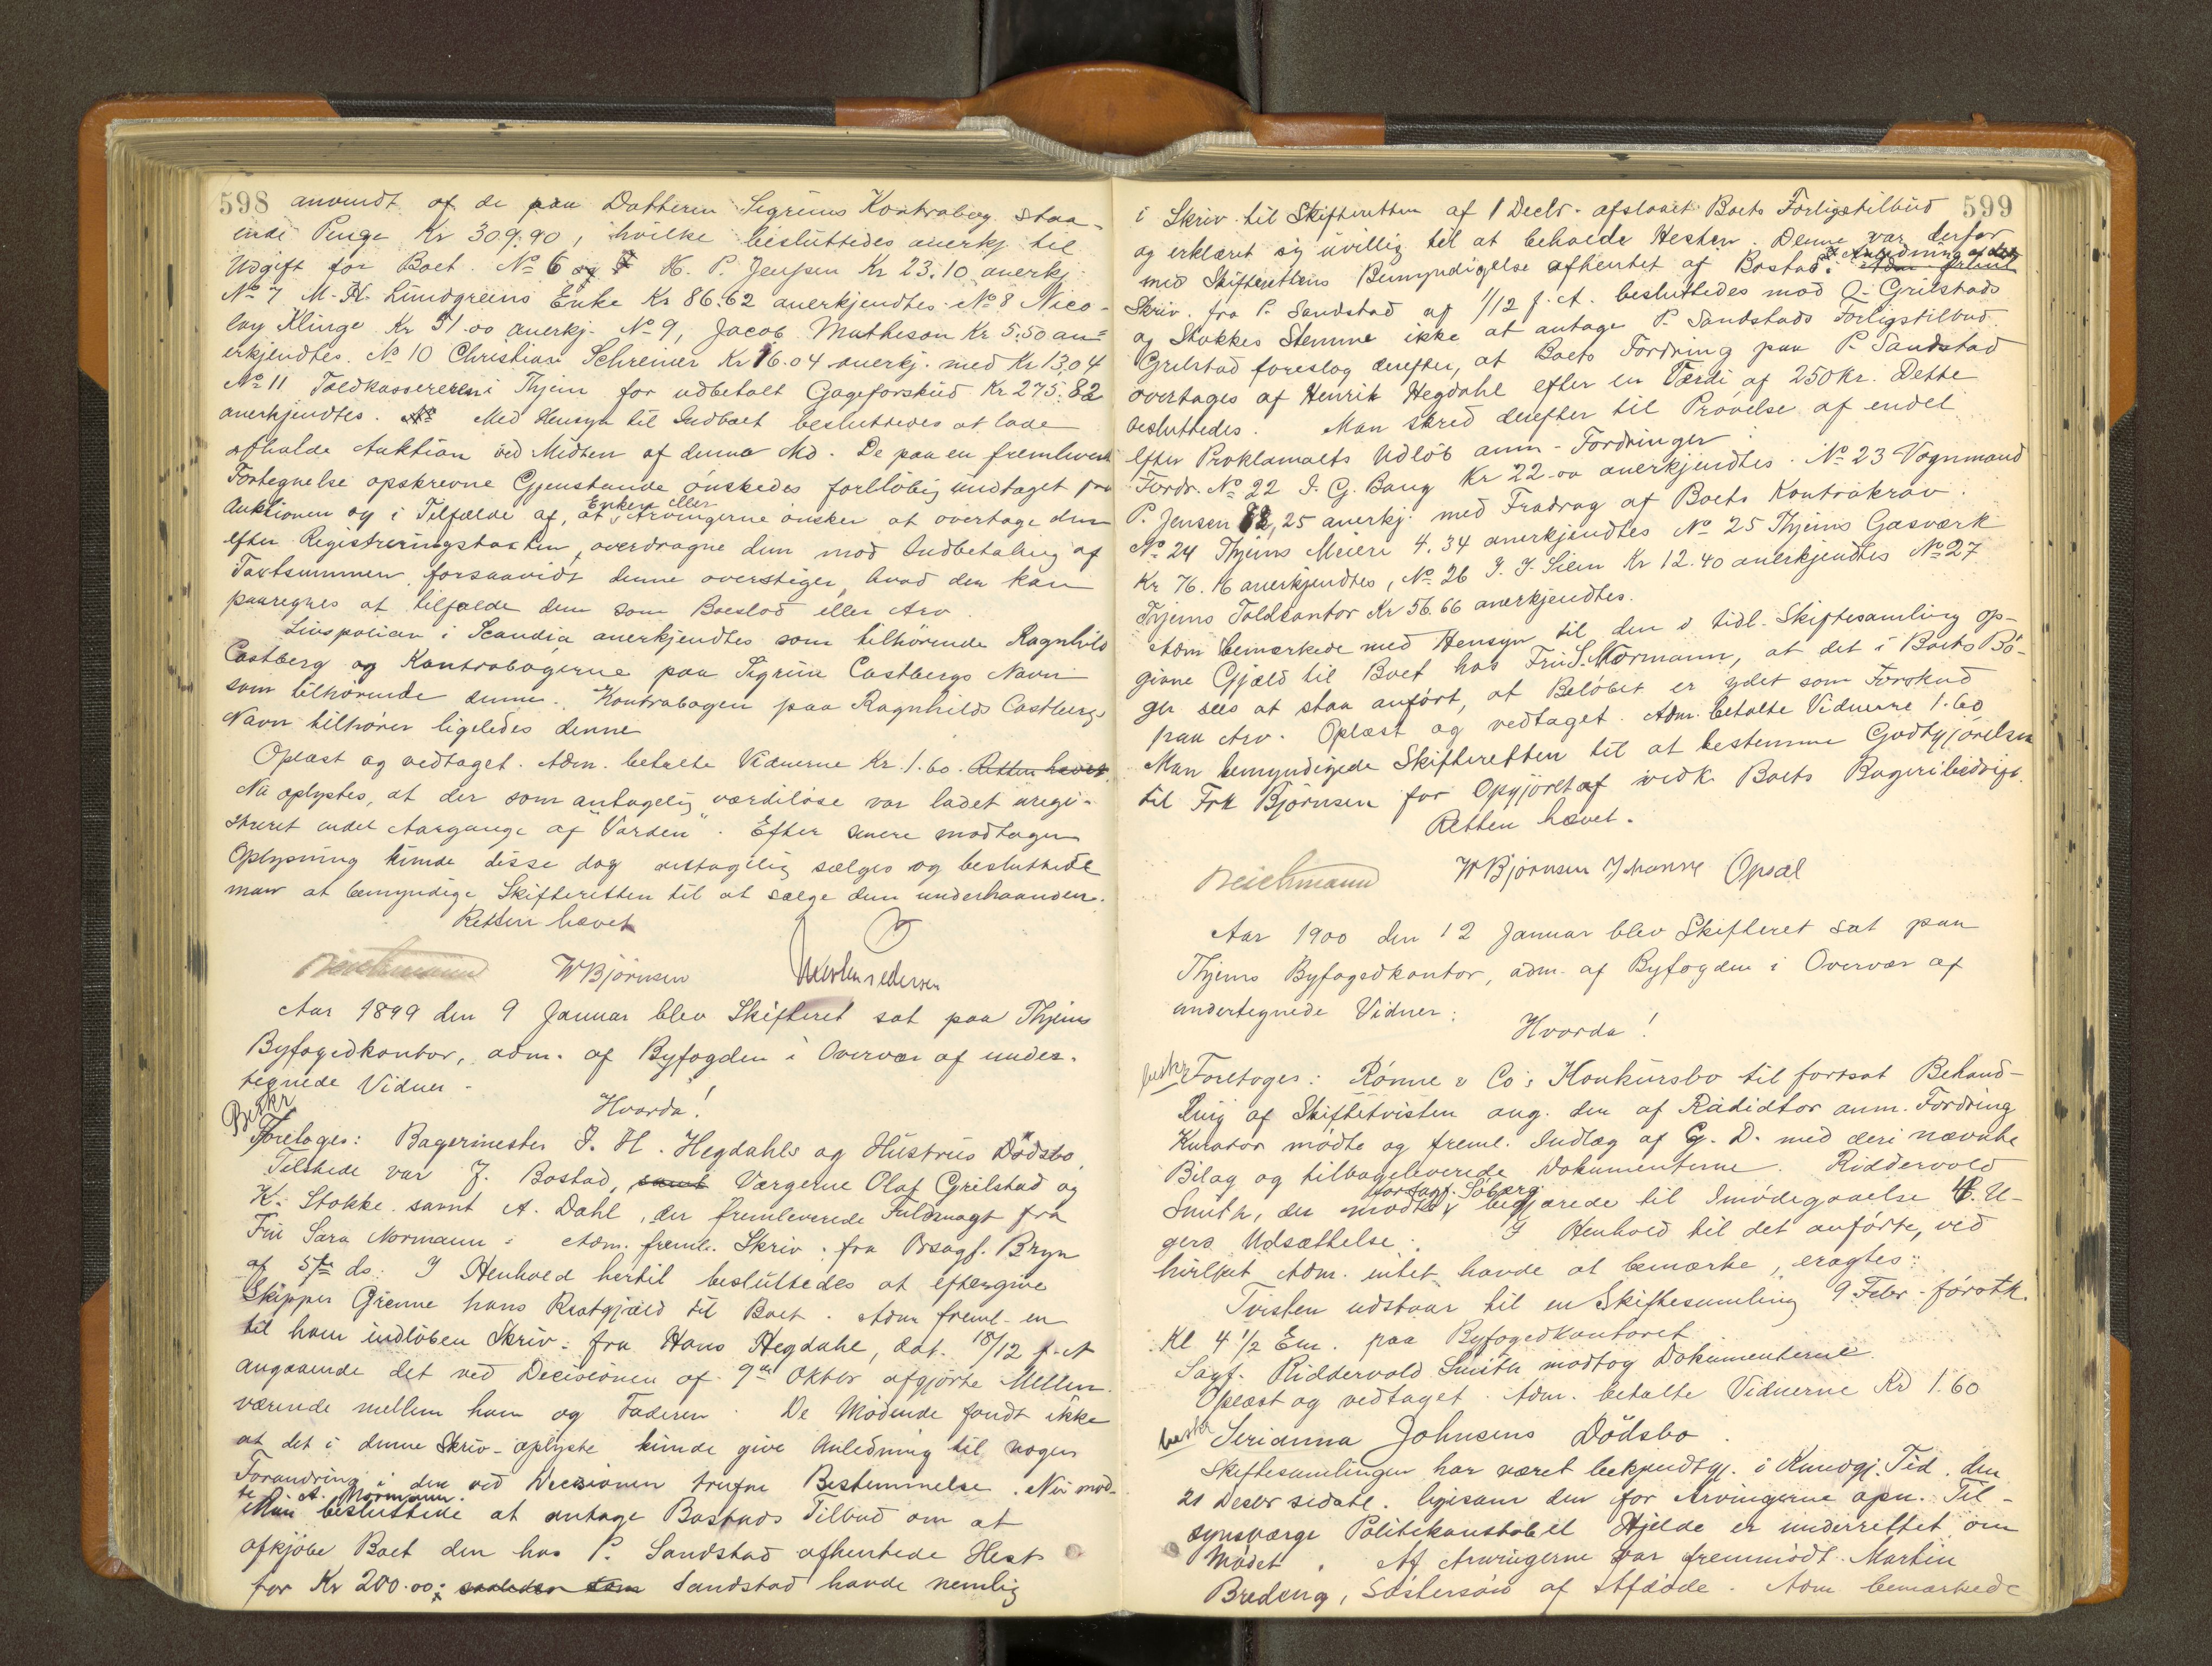 598 anvendt af de paa Datteren Sigruns Kontrabog staa-
ende Penge Kr 309.90, hvilke besluttedes anerkj til
Udgift for Boet. No 6 og H. P. Jenssen Kr 23.10 anerkj.
No 7 M. H. Lundgreens Enke Kr 86.62 anerkjendtes. No 8 Nico-
lay Klinge Kr 51.00 anerkj. No 9, Jacob Matheson Kr 5.50 an=
erkjendtes. No 10 Christian Schreiner Kr 16.04 anerkj. med Kr 13,04
No 11 Toldkassereren i Thjem for udbetalt Gageforskud Kr 275.82
anerkjendtes. No Med Hensyn til Indboet besluttedes at lade
afholde Auktion ved Midten af denne Md. De paa en fremleveret
Fortegnelse opskrevne Gjenstande ønskedes forløbig undtaget fra
Auktionen og i Tilfælde af, at Enken eller Arvingerne ønsker at overtage dem
efter Registreringstaxten, overdragne dem mod Indbetaling af
Taxtsummen, forsaavidt denne overstiger, hvad der kan
paaregnes at tilfalde dem som Boeslod eller Arv.
Livspolicen i Scandia anerkjendtes som tilhørende Ragnhild
Castberg og Kontrabøgerne paa Sigrun Castbergs Navn
som tilhørende denne. Kontrabogen paa Ragnhilds Castbergs
Navn tilhører ligeledes denne
Oplæst og vedtaget. Adm. betalte Vidnerne Kr. 1.60. Retten hævet.
Nu oplystes, at der som antagelig værdiløse var ladet uregi-
streret endel Aargange af "Varden". Efter senere modtagen
Oplysning kunde disse dog antagelig sælges og besluttede
man at bemyndige Skifteretten til at sælge dem underhaanden.
Retten hævet
Deichmann W Bjørnsen
Aar 1899 den 9 Januar blev Skifteret sat paa Thjems
Byfogedkontor, adm. af Byfogden i Overvær af under-
tegnede Vidner.
Hvorda!
Beskr
Foretoges: Bagermester J. H. Hegdahls og Hustrus Dødsbo
Tilstede var J. Bostad, samt Værgerne Olaf Grilstad og
K. Stokke samt A. Dahl, der fremleverede Fuldmagt fra
Fru Sara Normann. Adm. freml. Skriv. fra Orsagf. Bryn
af 5te ds. I Henhold hertil besluttedes at eftergive
Skipper Grenne hans Restgjæld til Boet. Adm freml. en
til ham indløben Skriv. fra Hans Hegdahl, dat. 18/12 f. A
angaaende det ved Decisionen af 9de Oktbr afgjørte Mellem-
værende mellem ham og Faderen. De Mødende fandt ikke
at det i denne Skriv. oplyste kunde give Anledning til nogen
Forandring i den ved Decisionen trufne Bestemmelse. Nu mød-
te A. Normann.
Man besluttede at antage Bostads Tilbud om at
afkjøbe Boet den hos P. Sandstad afhentede Hest
for Kr 200.00; saaledes som Sandstad havde nemlig
599
i Skriv. til Skifteretten af 1 Decbr. afslaaet Boets Forligstilbud
og erklæret sig uvillig til at beholde Hesten. Denne var derfor
med Skifterettens Bemyndigelse afhentet af Bostad. I Anledning af det
Skriv. fra P. Sandstad af 1/12 f. A. besluttedes mod O. Grilstads
og Stokkes Stemme ikke at antage P. Sandstads Forligstilbud.
Grilstad foreslog derefter, at Boets Fordring paa P. Sandstad
overtages af Henrik Hegdahl efter en Værdi af 250 Kr. Dette
besluttedes. Man skred derefter til Prøvelse af endel
efter Proklamaets Udløb anm. Fordringer:
Fordr. No 22 J. G. Bang Kr 22.00 anerkjendtes. No 23 Vognmand
P. Jensen 82,25 anerkj. med Fradrag af Boets Kontrakrav.
No 24 Thjems Meieri 4.34 anerkjendtes No 25 Thjems Gasværk
Kr 76.16 anerkjendtes, No 26 J. J. Siem Kr 12.40 anerkjendtes No 27
Thjems Toldkontor Kr 56.66 anerkjendtes.
Adm bemærkede med Hensyn til den i tidl. Skiftesamling op-
givne Gjæld til Boet hos Fru S. Normann, at det i Boets Bø-
ger sees at staa anført, at Beløbet er ydet som Forskud
paa Arv. Oplæst og vedtaget. Adm. betalte Vidnerne 1.60
Man bemyndigede Skifteretten til at bestemme Godtgjørelsen
til Frk Bjørnsen for Opgjøret af vedk. Boets Bageribedrift.
Retten hævet.
Deichmann W Bjørnsen Johanne Opsal
Aar 1900 den 12 Januar blev Skifteret sat paa
Thjems Byfogedkontor, adm. af Byfogden i Overvær af
undertegnede Vidner:
Hvorda!
beskr
Foretoges: Rønne & Co's Konkursbo til fortsat Behand-
ling af Skiftetvisten ang. den af Radidtor anm. Fordring
Kurator mødte og freml. Indlæg af G. D. med deri nævnte
Bilag og tilbageleverede Dokumenterne. Riddervold
Smith, der mødte for Sagf. Søberg begjærede til Imødegaaelse 4 U-
gers Udsættelse. I Henhold til det anførte, ved
hvilket Adm. intet havde at bemærke, eragtes:
Tvisten udstaar til en Skiftesamling 9 Febr. førstk.
Kl 4 1/2 Em. paa Byfogedkontoret.
Sagf. Riddervold Smith modtog Dokumenterne.
Oplæst og vedtaget. Adm. betalte Vidnerne Kr 1.60
beskr
Serianna Johnsens Dødsbo.
Skiftesamlingen har været bekjendtgj. i Kundgj. Tid. den
21 Decbr sidstl. ligesom den for Arvingerne opn. Til-
synsværge Politikonstabel Hjelde er underrettet om
Mødet. Af Arvingerne var fremmødt Martin
Bredeng, Søstersøn af Afdøde. Adm bemærkede